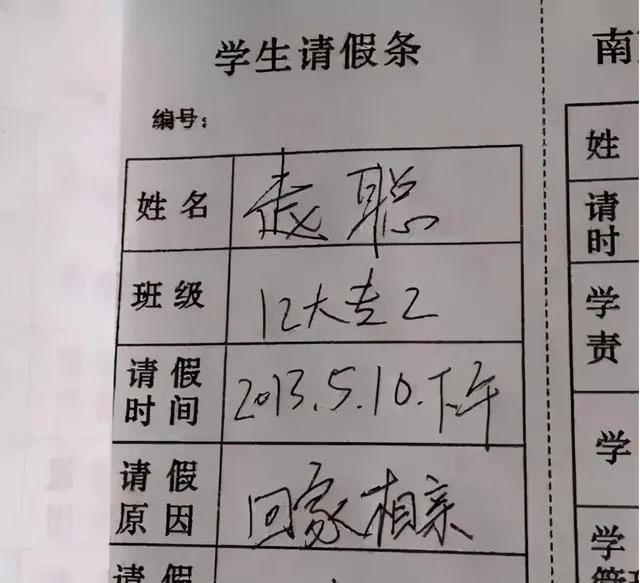 学生请假条
编号：
姓名 袁聪
班级 12大专2
请假时间 2013.5.10.下午
请假原因 回家相亲
请假
南
姓
请
时
学
责
学
学